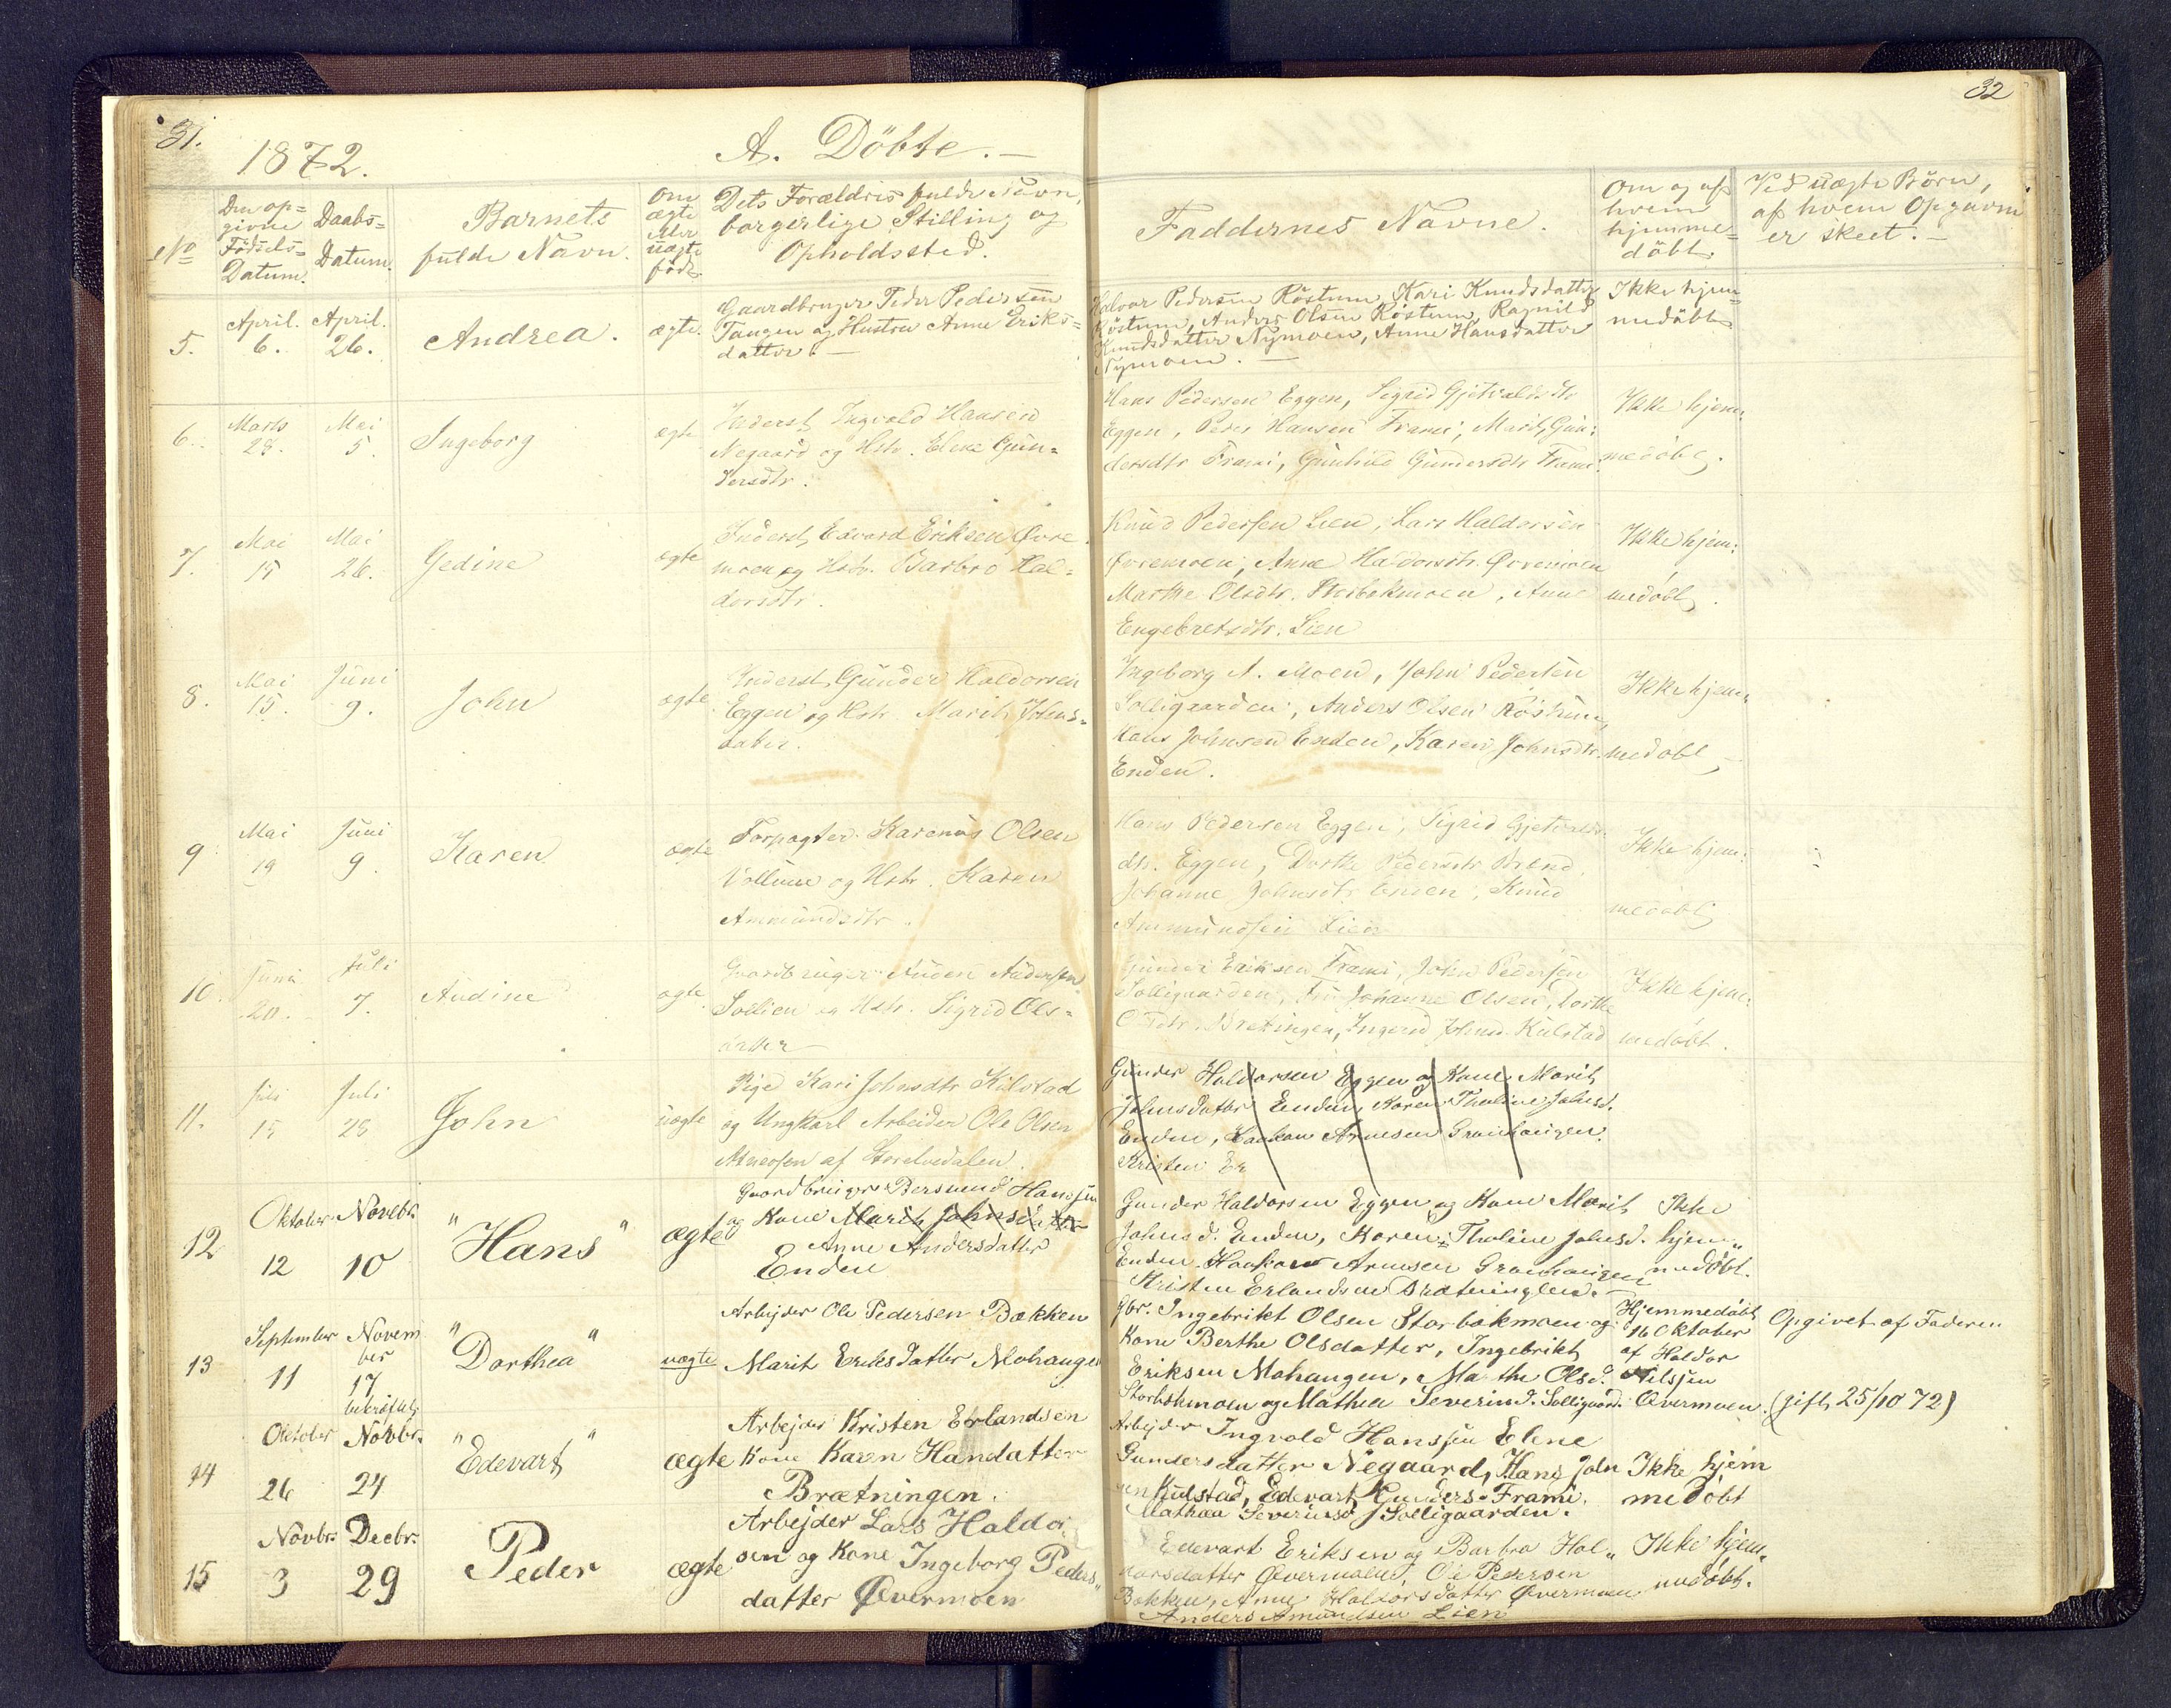 31.
1872.
A. Döbte.
32
No
Den op-
givne
Födsels-
Datum.
Daabs-
Datum.
Barnets
fulde Navn.
Om
ægte
eller
uægte
född.
Dets Forældres fulde Navn,
borgerlige Stilling og
Opholdssted.
Faddernes Navne.
Om og af
hvem
hjemme-
döbt.
Ved uægte Börn,
af hvem Opgaven
er skeet.
5.
April.
6.
April.
26.
Andrea.
ægte.
Gaardbruger Peder Pedersen
Tangen og Hustru Anne Eriks-
datter.
Halvor Pedersen Röstum, Kari Knudsdatter
Röstum, Anders Olsen Röstum, Ragnild
Knudsdatter Nymoen, Anne Hansdatter
Nymoen.
Ikke hjem-
medöbt
6.
Marts
28.
Mai
5.
Ingeborg
ægte
Inderst, Ingvold Hansen
Negaard og Hstr. Elene Gun-
dersdtr.
Hans Pedersen Eggen, Sigrid Gjetvaldsdtr
Eggen, Peder Hansen Frami, Marit Gun-
dersdtr Frami, Gunhild Gundersdtr Frami
Ikke hjem-
medöbt.
7.
Mai
15
Mai
26.
Gedine
ægte
Inderst, Edvard Eriksen Övre
moen og Hstr. Barbro Hal-
dorsdtr.
Knud Pedersen Lien, Lars Haldorsen
Övremoen, Anne Haldorsdtr. Övremoen
Marthe Olsdtr. Storbekmoen, Anne
Engebretsdtr. Lien
Ikke hjem-
medöbt.
8.
Mai
15.
Juni
9.
John
ægte
Inderst, Gunder Haldorsen
Eggen og Hstr. Marit Johns-
datter.
Ingeborg A. Moen, John Pedersen
Solligaarden, Anders Olsen Röstum,
Hans Johnsen Enden, Karen Johnsdtr.
Enden.
Ikke hjem-
medöbt
9
Mai
19
Juni
9.
Karen
ægte
Forpagter Karenus Olsen
Vollum og Hstr. Karen
Ammundsdtr.
Hans Pedersen Eggen, Sigrid Gjetvalds-
dtr. Eggen, Dorthe Pedersdtr
Johanne Johnsdtr Enden, Knud
Ammundsen Lien
Ikke hjem-
medöbt
10.
Juni
20.
Juli
7.
Audine
ægte
Gaardbruger Auden Audensen
Sollien og Hstr. Sigrid Ols-
datter
Gunder Eriksen Frami, John Pedersen
Solligaarden, Fru Johanne Olsen, Dorthe
Brætningen, Ingerid Johnsd. Kulstad
Ikke hjem-
medöbt.
11.
Juli
15
Juli
28
John
uægte
Pige Kari Johnsdtr Kulstad
og Ungkarl Arbeider Ole Olsen
af Storelvedalen.
Gunder Haldorsen Eggen og Kone Marit
Johnsdatter Enden, Karen Tholine Johnsd.
Enden, Haakon Arnesen Gronhaugen.
Kristen Er
12
Oktober
12
Novebr.
10
"Hans"
ægte
Gaardbruger Bersvend Hansen
og Kone Marit Johnsdatter
Anne Andersdatter
Enden
Gunder Haldorsen Eggen og Kone Marit
Johnsd. Enden, Karen Tholine Johnsd.
Enden. Haakon Arnesen Gronhaugen
Kristen Erlandsen Brætninglen.
Ikke
hjem-
medöbt.
13
September
11
Novem
ber
17
bekræftet
"Dorthea"
uægte
Arbejder Ole Pedersen Bakken
Marit Eriksdatter Mohaugen
Gbr. Ingebrikt Olsen Storbakmoen og
Kone Berthe Olsdatter, Ingebrikt
Eriksen Mohaugen, Marthe Olsd.
Storbakmoen og Mathea Severind. Solligaard.
Hjemmedöbt
16 Oktober
af Haldor
Nilssen
Øvermoen.
Opgivet af Faderen
(gift 25/10 72)
14
Oktober
26
Novbr.
24
"Edevart"
ægte
Arbejder Kristen Erlandsen
Kone Karen Handatter
Brætningen.
Arbejder Ingvold Hanssen Elene
Gundersdatter Negaard, Hans John
sen Kulstad, Edevart Gunders. Frami.
Mathea Severinsd Solligaarden.
Ikke hjem
medöbt
15
Novbr.
3
Decbr.
29
Peder
ægte
Arbejder Lars Haldor
sen og Kone Ingeborg Peders-
datter Øvermoen
Edevart Eriksen og Barbro Hal-
dorsdatter Øvermoen, Ole Pedersen
Bakken, Anne Haldorsdatter Øvermoen
Anders Amundsen Lien
Ikke hjem-
medöbt.